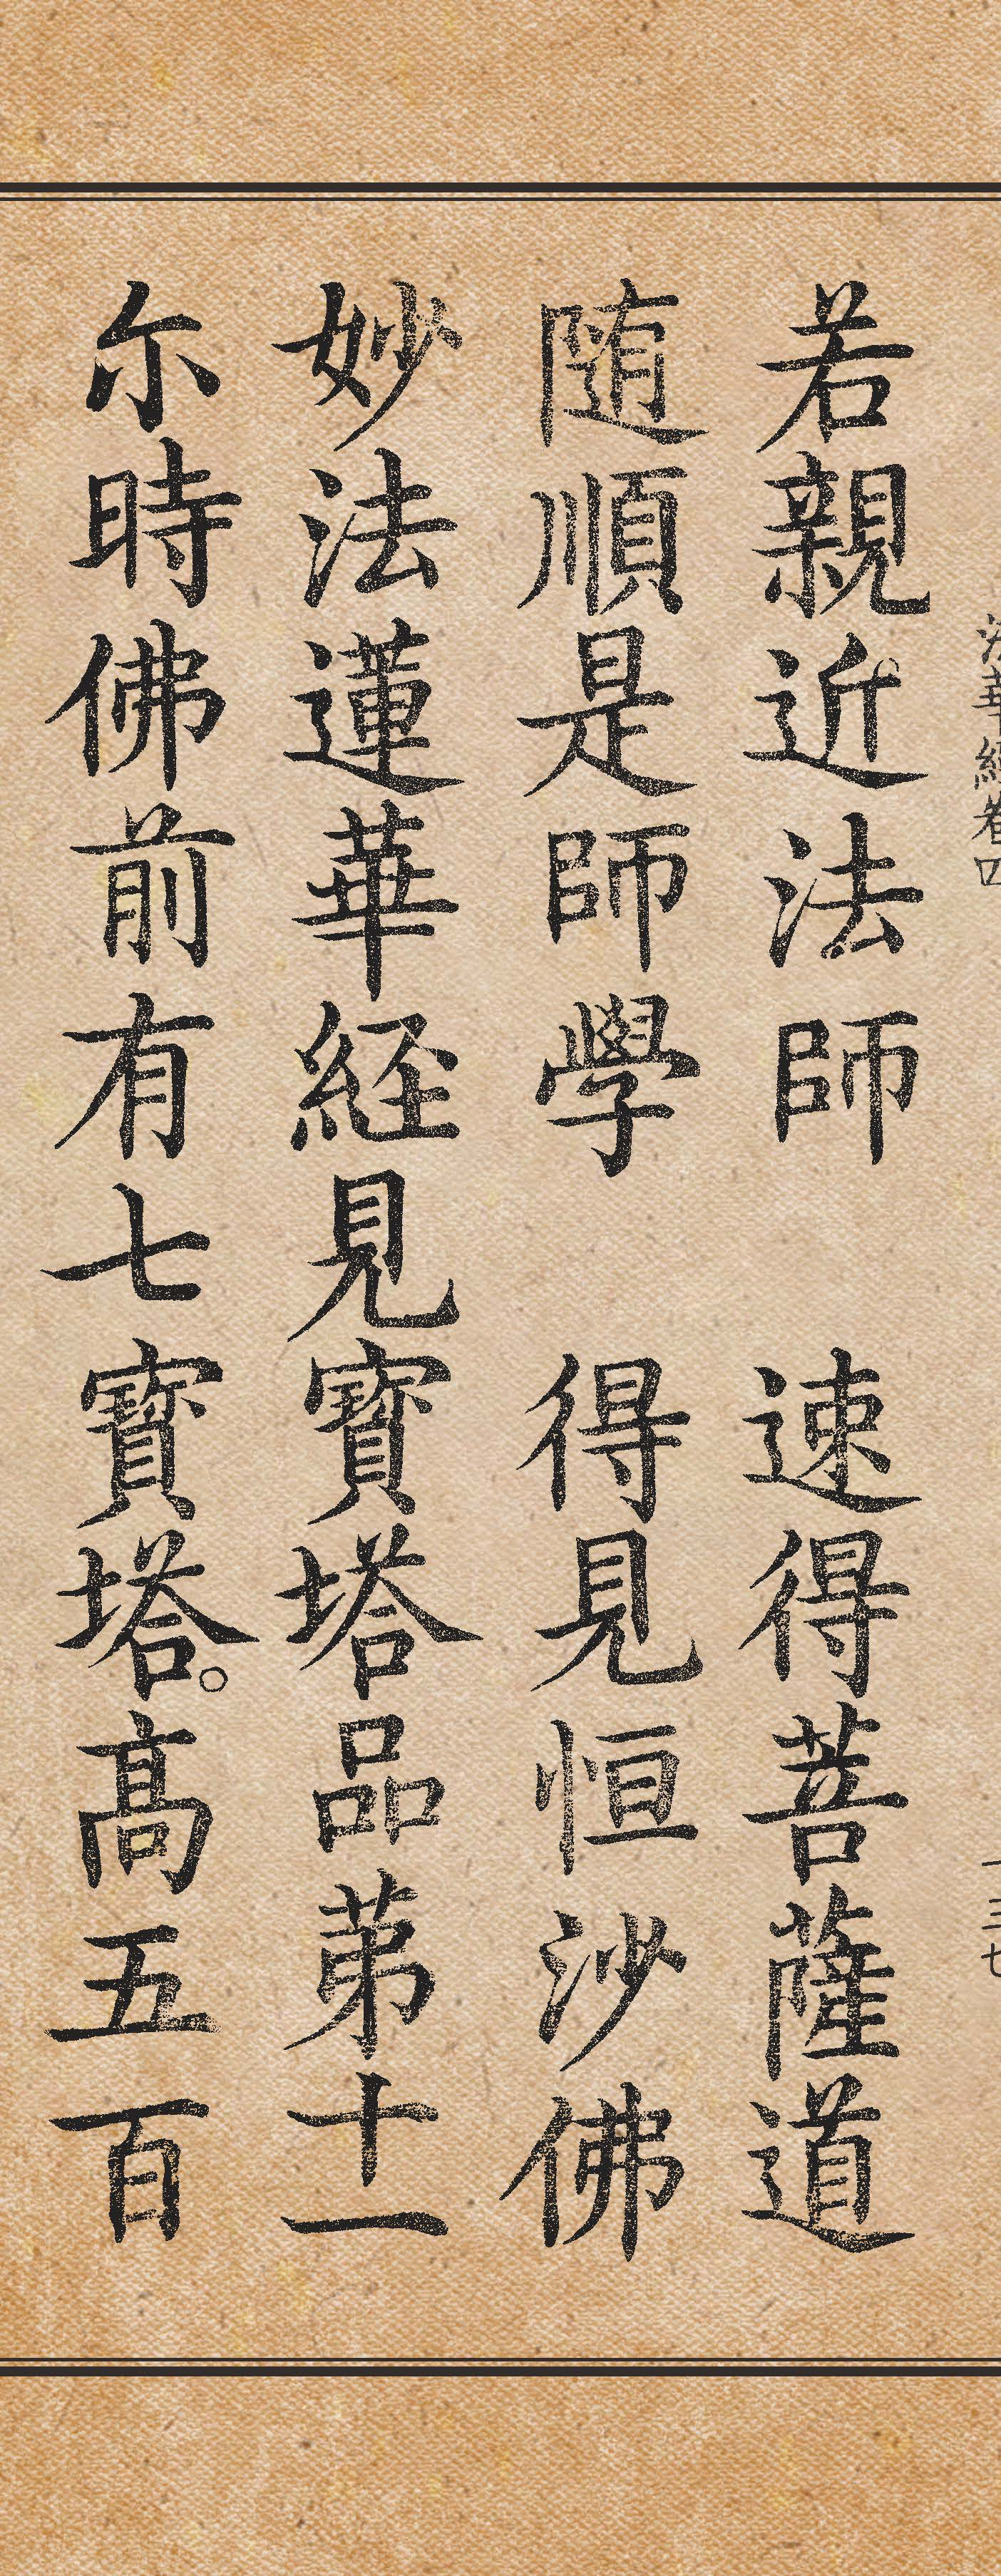 法華經卷四 一三七
若親近法師 速得菩薩道
随順是師學 得見恒沙佛
妙法蓮華経見寶塔品苐十一
尓時佛前有七寶塔。高五百